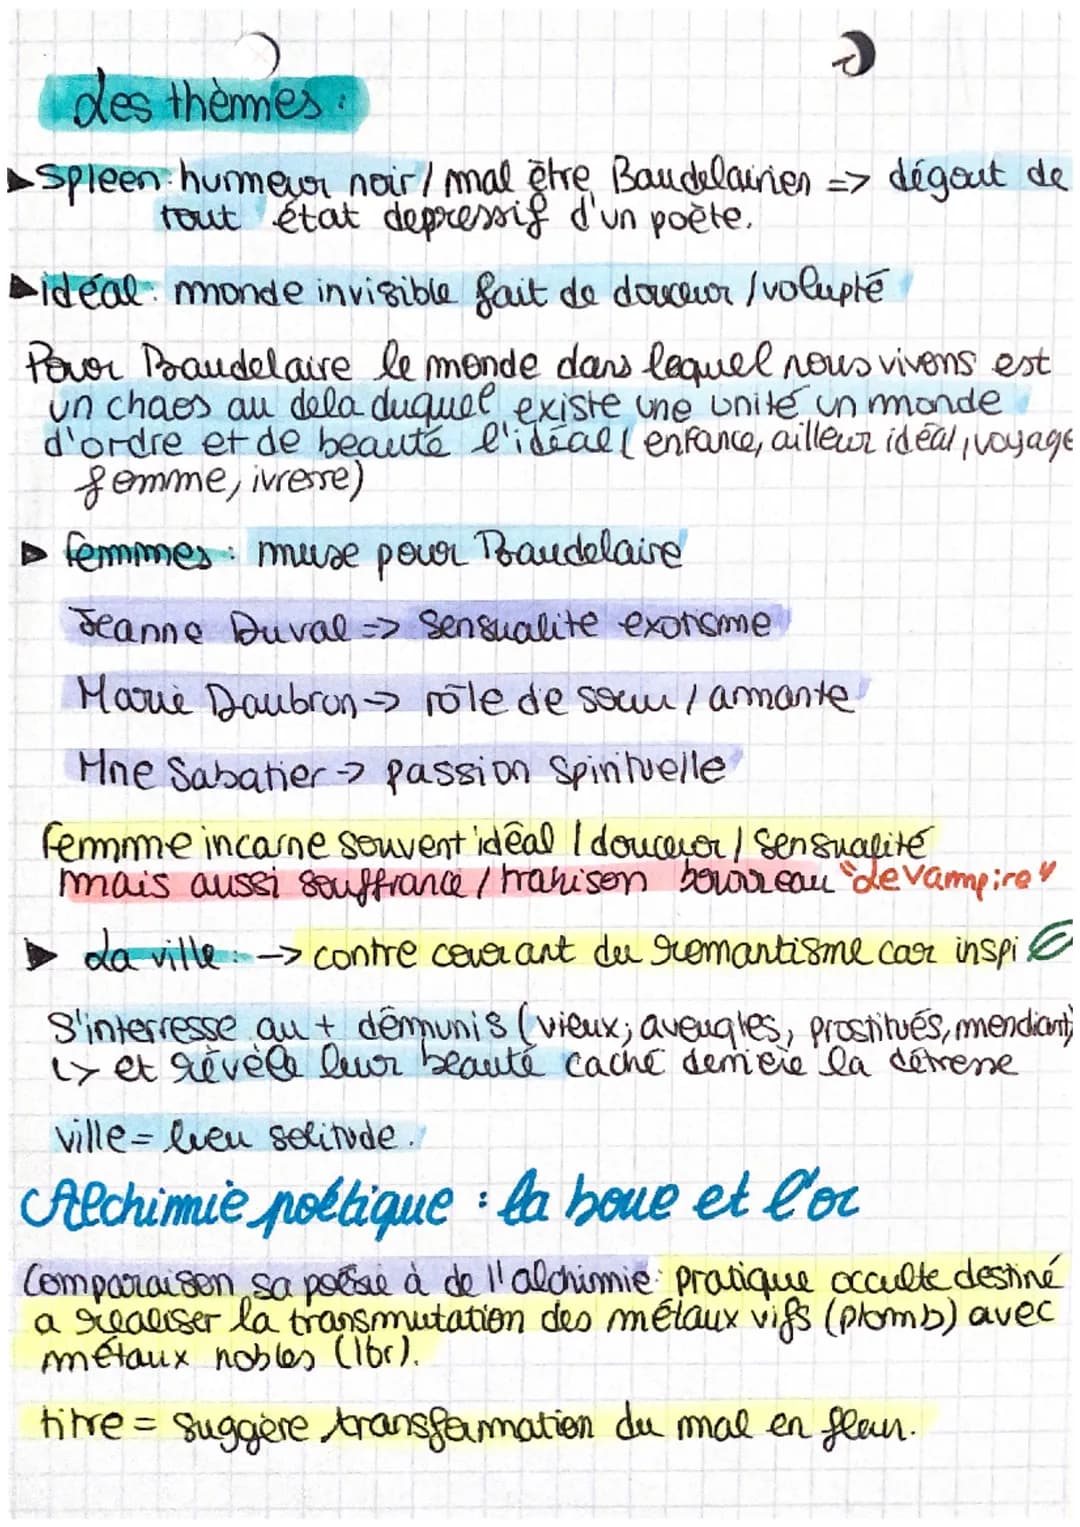 Les thèmes :
▶Spleen : humeur noir / mal être Baudelairien => dégout de
tout état depressif d'un poète.
▶idéal : monde invisible fait de douceur / volupté
Pour Baudelaire le monde dans lequel nous vivons est
un chaos au dela duquel existe une unité un monde
d'ordre et de beauté l'idéal ( enfance, ailleur idéal, voyage
femme, ivresse)
▶ femmes : muse pour Baudelaire
Jeanne Duval => Sensualite exotisme
Marie Daubrun -> rôle de sœur / amante
Mne Sabatier -> passion Spirituelle
femme incarne souvent idéal / douceur / Sensualité
mais aussi souffrance / trahison bourreau "le vampire"
▶ La ville : -> contre courant du romantisme car inspi
S'interresse au + démunis (vieux, aveugles, prostitués, mendiant)
↳ et révèle leur beauté caché derriere la détresse
ville = lieu solitude.
Alchimie poétique : la boue et l'or
Comparaison sa poésie à de l'alchimie : pratique occulte destiné
a realiser la transmutation des métaux vifs (plomb) avec
métaux nobles (l'or).
titre = suggère transformation du mal en fleur.